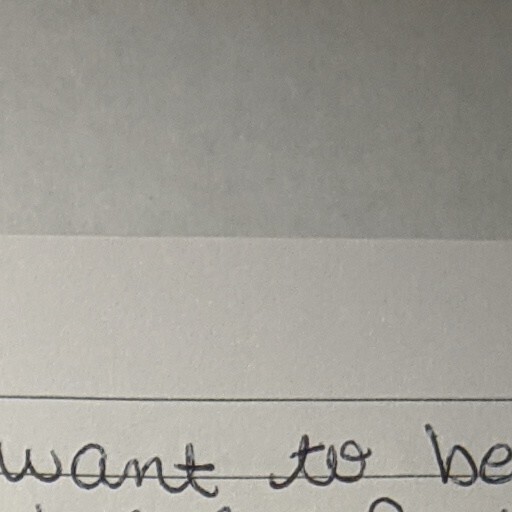 want to be